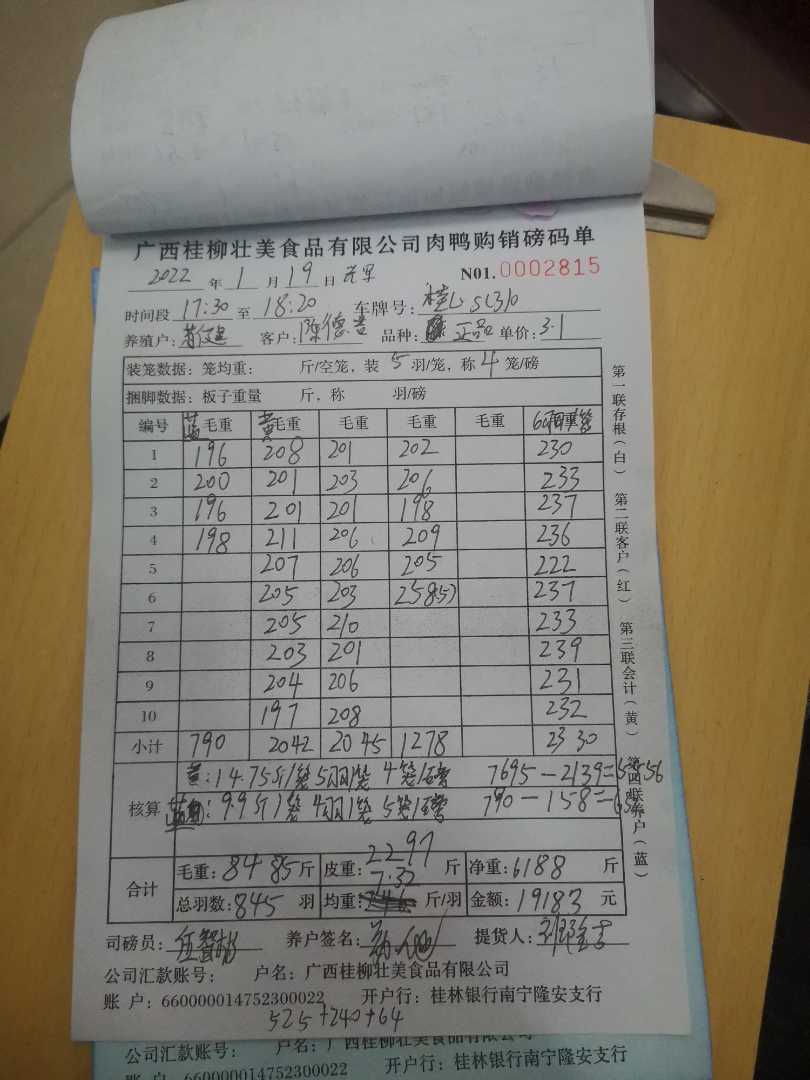 广西桂柳壮美食品有限公司肉鸭购销磅码单
2022 年 1 月 19 日 N01.0002815
时间段 17:30 至 18:20 车牌号:
养殖户: 客户: 陈德 品种: 正品 单价: 3.1
装笼数据: 笼均重: 斤/空笼, 装 5 羽/笼, 称 4 笼/磅
捆脚数据: 板子重量 斤, 称 羽/磅
编号 蓝毛重 黄毛重 毛重 毛重 毛重
1 196 208 201 202 230
2 200 201 203 206 233
3 196 201 201 198 237
4 198 211 206 209 236
5 207 206 205 222
6 205 203 258(5) 237
7 205 210 233
8 203 201 239
9 204 206 231
10 197 208 232
小计 790 2042 2045 1278 2330
黄: 14.75斤/笼 5羽/笼 4笼/磅 7695-2139=5556
核算 9.9斤/笼 4羽/笼 5笼/磅 790-158=632
合计 毛重: 8485 斤 皮重: 2297 斤 净重: 6188 斤
总羽数: 845 羽 均重: 7.32 斤/羽 金额: 19183 元
司磅员: 养户签名: 提货人:
公司汇款账号: 户名: 广西桂柳壮美食品有限公司
账 户: 660000014752300022 开户行: 桂林银行南宁隆安支行
525+240+64
第一联存根(白) 第二联客户(红) 第三联会计(黄) 第四联养户(蓝)
公司汇款账号: 户名: 广西桂柳壮美食品有限公司
账 户: 660000014752300022 开户行: 桂林银行南宁隆安支行